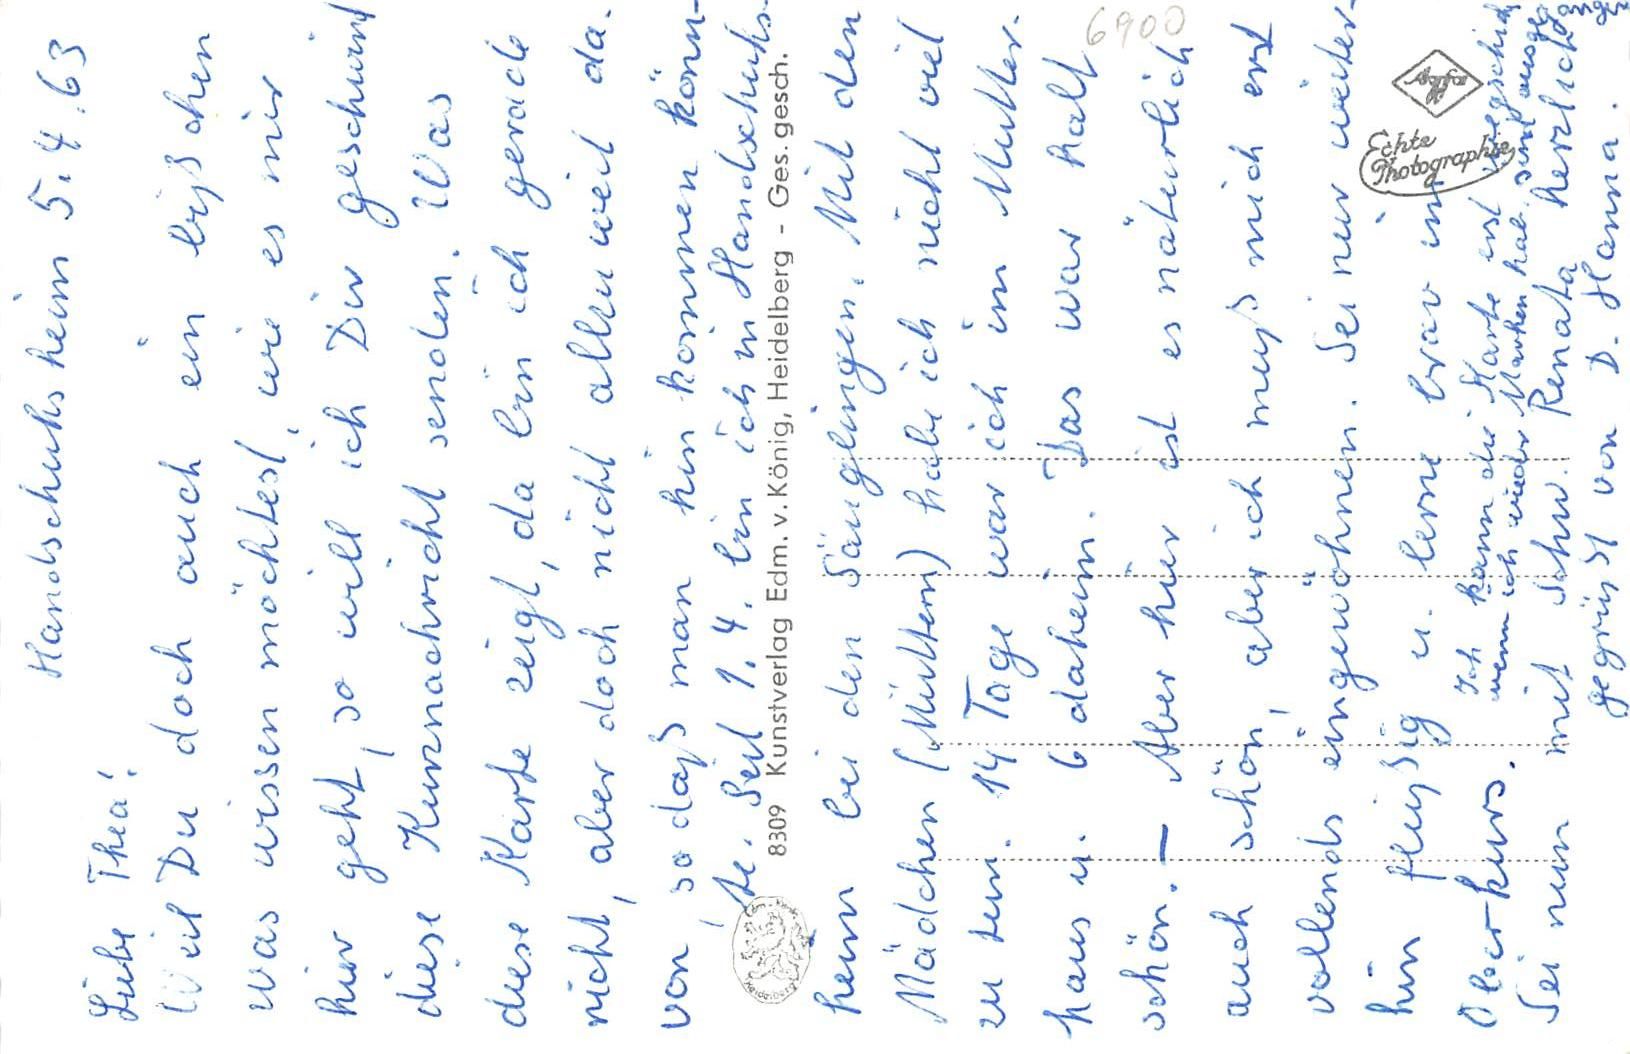 Handschuhsheim 5.4.63
Liebe Thea!
Weil Du doch auch ein bißchen
was wissen möchtest, wie es mir
hier geht, so will ich Dir geschwind
diese Kurznachricht senden. Was
diese Karte zeigt, da bin ich gerade
nicht, aber doch nicht allzu weit da-
von, so daß man hin kommen könn-
te. Seit 1.4. bin ich in Handschuhs-
heim bei den Säuglingen. Mit den
Mädchen (Müttern) habe ich nicht viel
zu tun. 14 Tage war ich im Mutter-
haus u. 6 daheim. Das war halt
schön. — Aber hier ist es natürlich
auch schön, aber ich muß mich erst
vollends eingewöhnen. Sei nur weiter-
hin fleißig u. lerne brav im
Oberkurs. Ich kann die Karte erst
wenn ich wieder Marken hab. sind
Sei nun mit Schw. Renata herzlich
gegrüßt von D. Hanna.
8309 Kunstverlag Edm. v. König, Heidelberg - Ges. gesch.
Edm. v. König
Heidelberg
Agfa
Echte
Photographie
6900